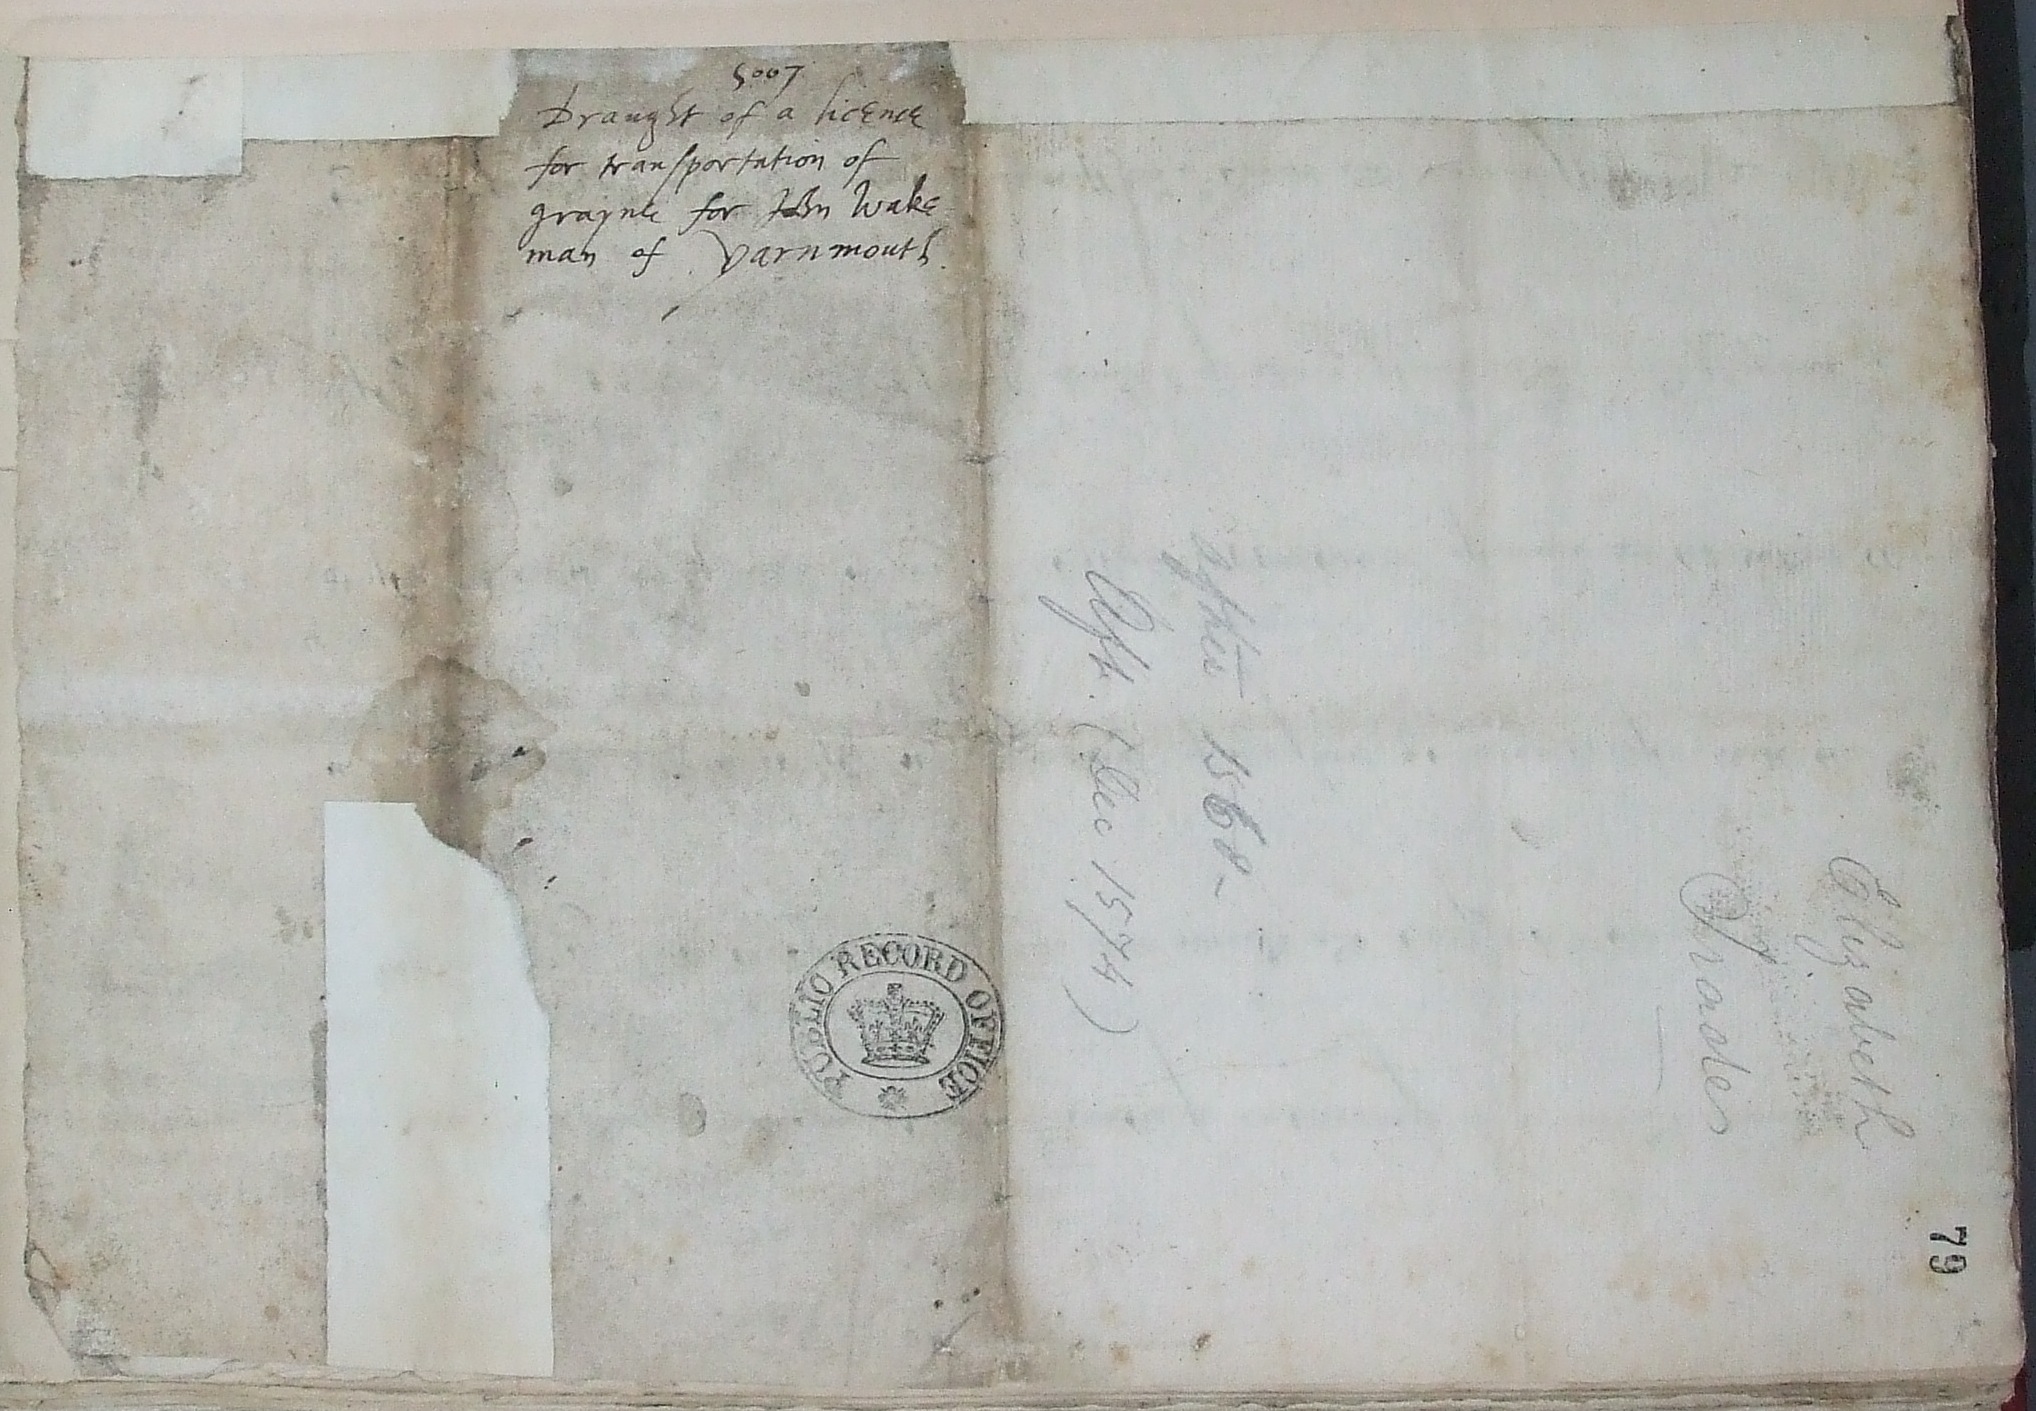 5007
Draught of a licence
for transportation of
grayne for John Wake
man of Yarnmouth
after 1568-
(Dec 1574)
Elizabeth
Trades
PUBLIC RECORD OFFICE
79